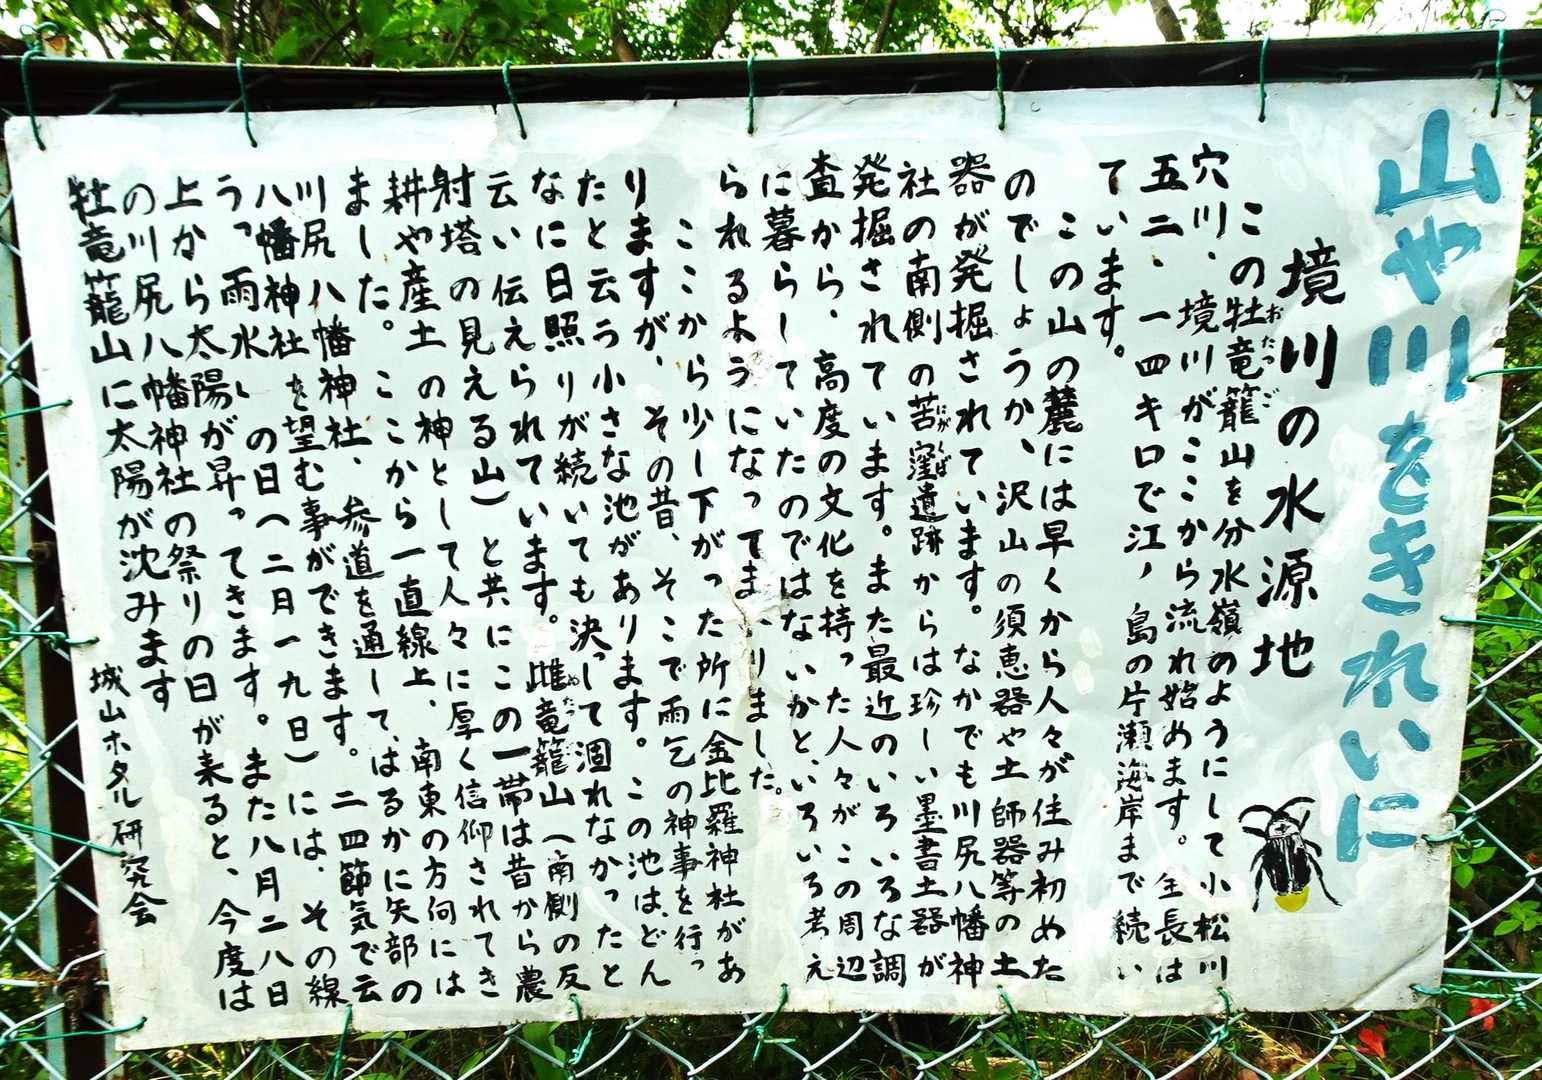 山や川をきれいに
境川の水源地
この牡竜籠山を分水嶺のようにして小松川
おたつご
穴川、境川がここから流れ始めます。全長は
五二、一四キロで江ノ島の片瀬海岸まで続い
ています。
この山の麓には早くから人々が住み初めた
のでしょうか、沢山の須恵器や土師器等の土
器が発掘されています。なかでも川尻八幡神
社の南側の苦窪遺跡からは珍しい墨書土器が
にがくぼ
発掘されています。また最近のいろいろな調
査から、高度の文化を持った人々がこの周辺
に暮らしていたのではないかと、いろいろ考え
られるようになってまいりました。
ここから少し下がった所に金比羅神社があ
りますが、その昔、そこで雨乞の神事を行っ
たと云う小さな池があります。この池は、どん
なに日照りが続いても決って涸れなかったと
云い伝えられています。雌竜籠山(南側の反
射塔の見える山)と共にこの一帯は昔から農
耕や産土の神として人々に厚く信仰されてき
ました。ここから一直線上、南東の方向には
川尻八幡神社、参道を通して、はるかに矢部の
八幡神社を望む事ができます。二四節気で云
う「雨水」の日(二月一九日)には、その線
上から太陽が昇ってきます。また八月二八日
の川尻八幡神社の祭りの日が来ると、今度は
牡竜籠山に太陽が沈みます
城山ホタル研究会